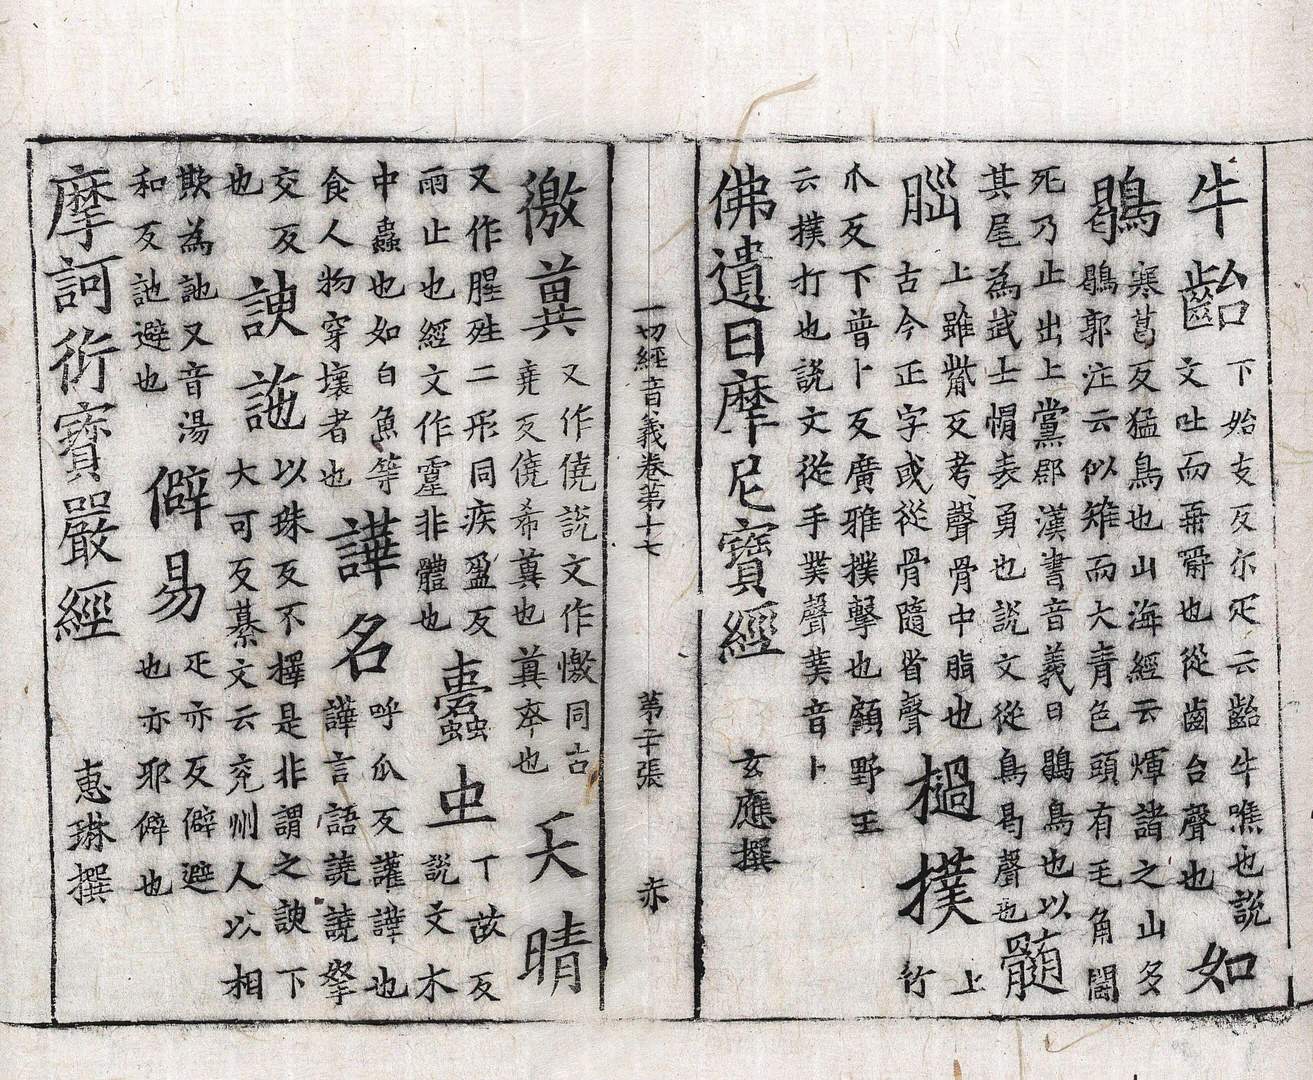 牛齝下始支反尓疋云齝牛噍也說
文吐而再嚼也從齒台聲也如
鶡寒葛反猛鳥也山海經云煇諸之山多
鶡郭注云似雉而大青色頭有毛角鬪
死乃止出上黨郡漢書音義曰鶡鳥也以
其尾為武士㡌表勇也說文從鳥曷聲也髓
腦上雖觜反考聲骨中脂也
古今正字或從骨隨省聲檛撲上竹
爪反下普卜反廣雅撲擊也顧野王
云撲打也說文從手菐聲菐音卜
佛遺日摩尼寶經玄應撰
一切經音義卷第十七 第二十張 赤
徼兾又作僥說文作憿同古
堯反僥希兾也兾幸也夭晴
又作腥殅二形同疾盈反
雨止也經文作霪非體也蠹虫丁故反說文木
中蟲也如白魚等
食人物穿壞者也譁名呼瓜反讙譁也
譁言語譊譊拏
交反也諛訑以珠反不擇是非謂之諛下
大可反纂文云兖州人以相
欺為訑又音湯
和反訑避也僻易疋亦反僻避
也亦耶僻也
摩訶衍寶嚴經惠琳撰